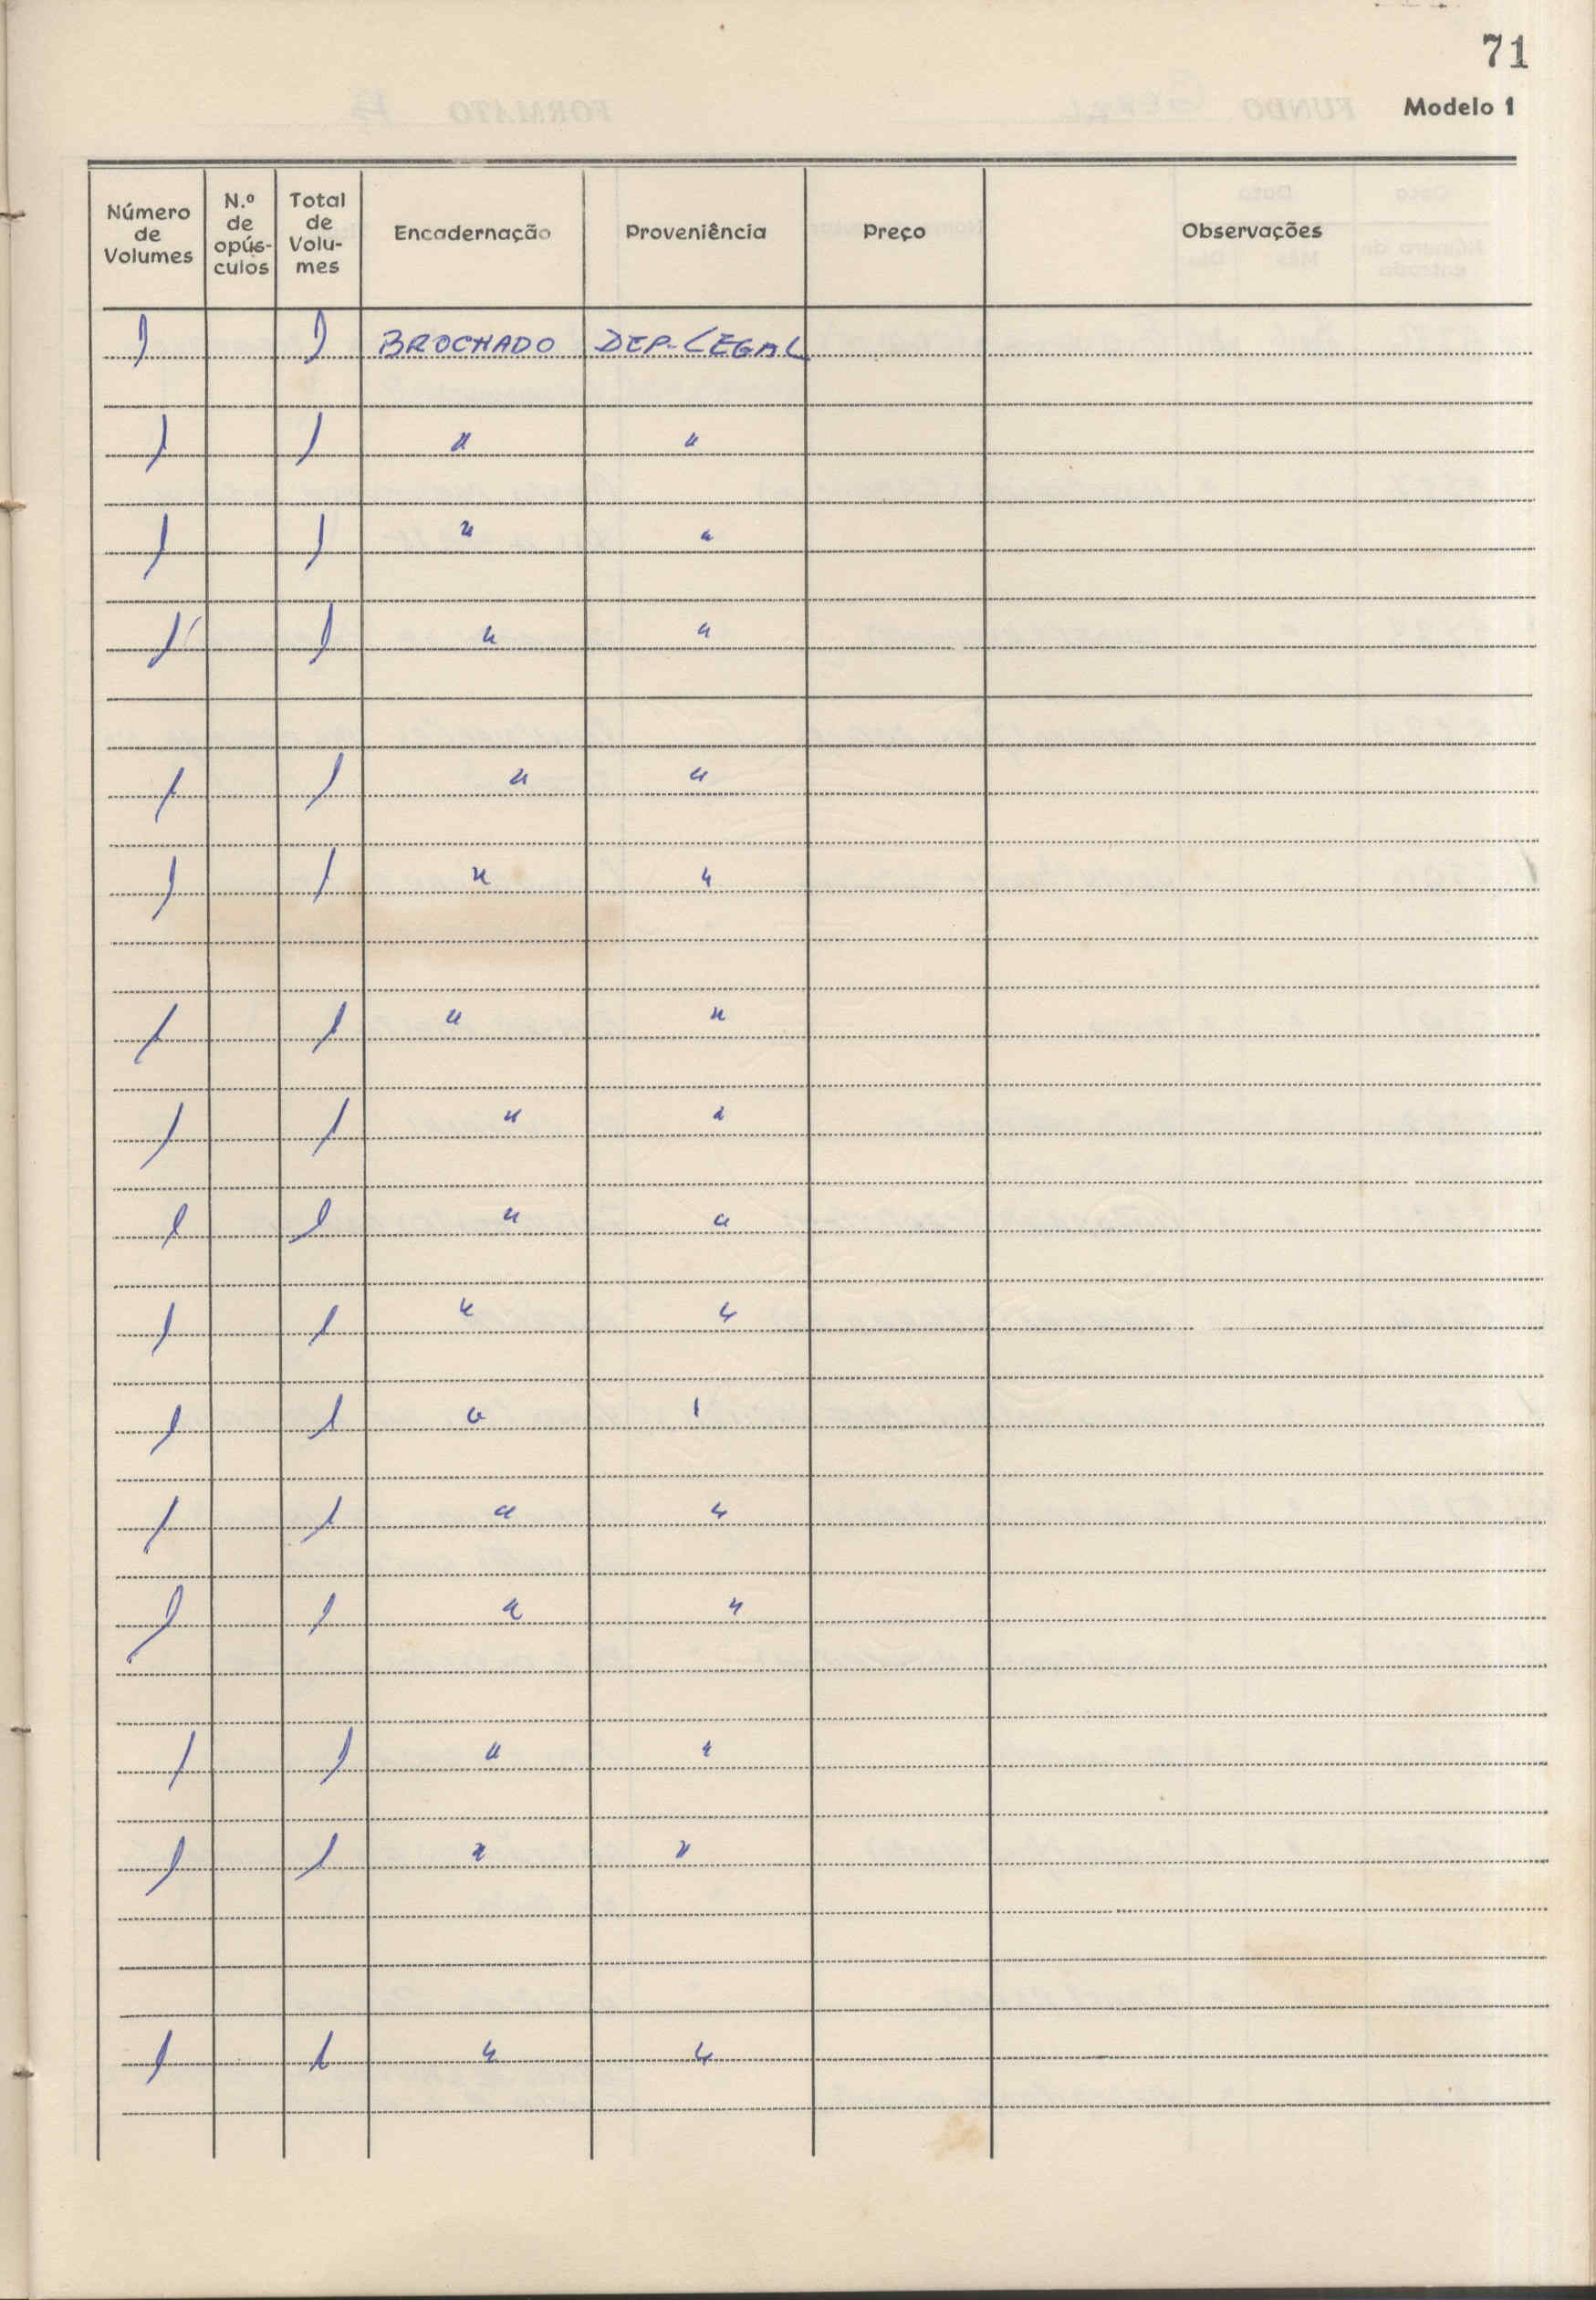 71
Modelo 1
Número de Volumes | N.º de opús-culos | Total de Volu-mes | Encadernação | Proveniência | Preço | Observações
1 | | 1 | BROCHADO | DEP-LEGAL
1 | | 1 | " | "
1 | | 1 | " | "
1 | | 1 | " | "
1 | | 1 | " | "
1 | | 1 | " | "
1 | | 1 | " | "
1 | | 1 | " | "
1 | | 1 | " | "
1 | | 1 | " | "
1 | | 1 | " | "
1 | | 1 | " | "
1 | | 1 | " | "
1 | | 1 | " | "
1 | | 1 | " | "
1 | | 1 | " | "